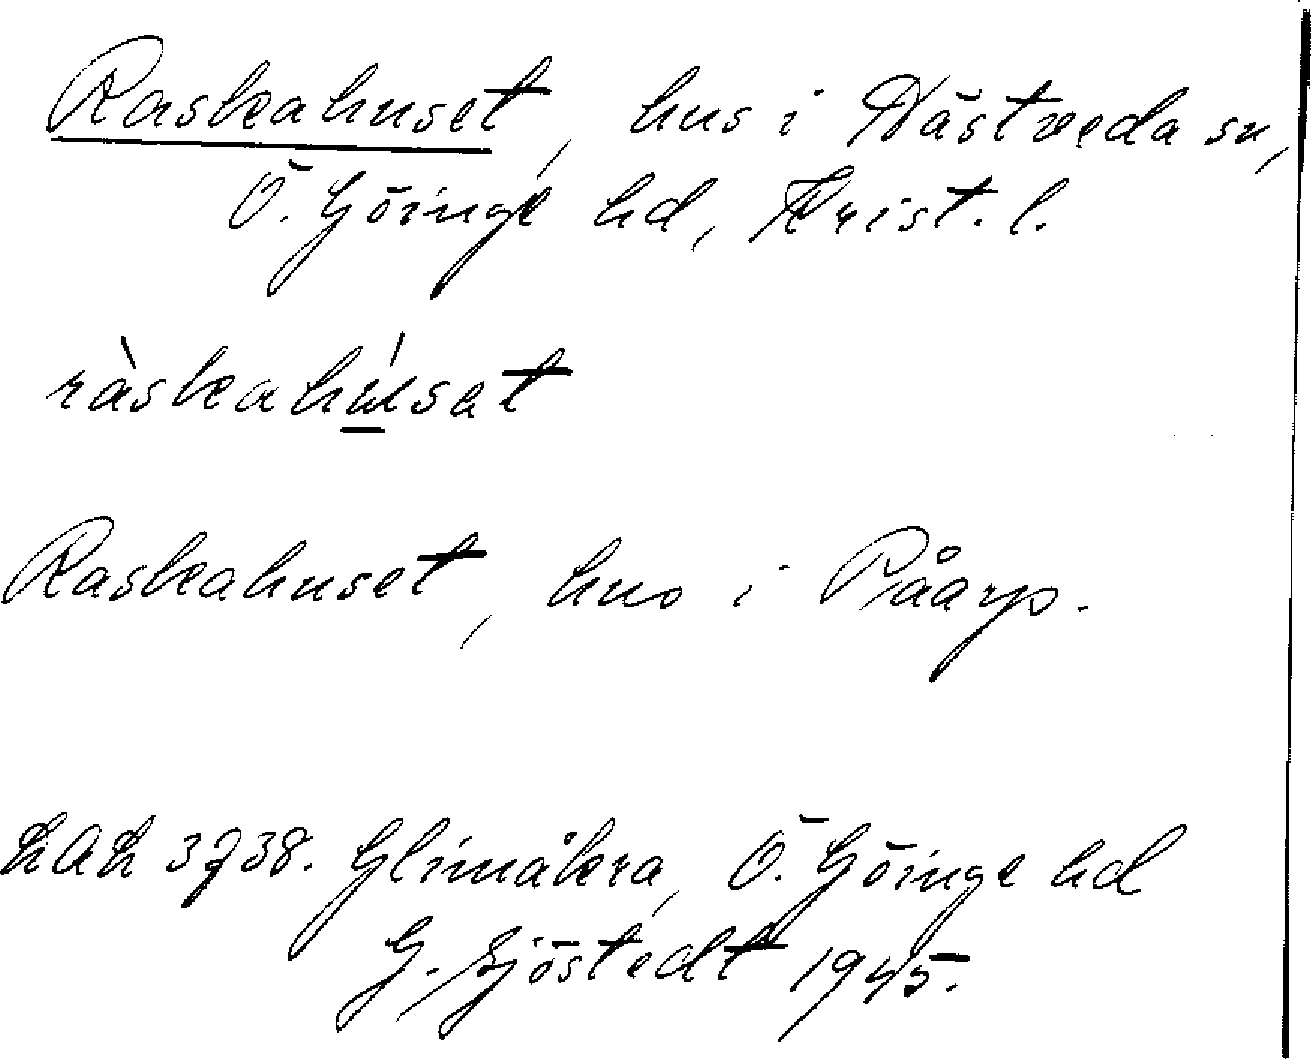 Raskahuset, hus i Hästveda sn,
Ö. Göinge hd, Krist. l.
ràskahúsat
Raskahuset, hus i Påarp.
LAL 3738. Glimåkra, Ö. Göinge hd
G. Sjöstedt 1945.